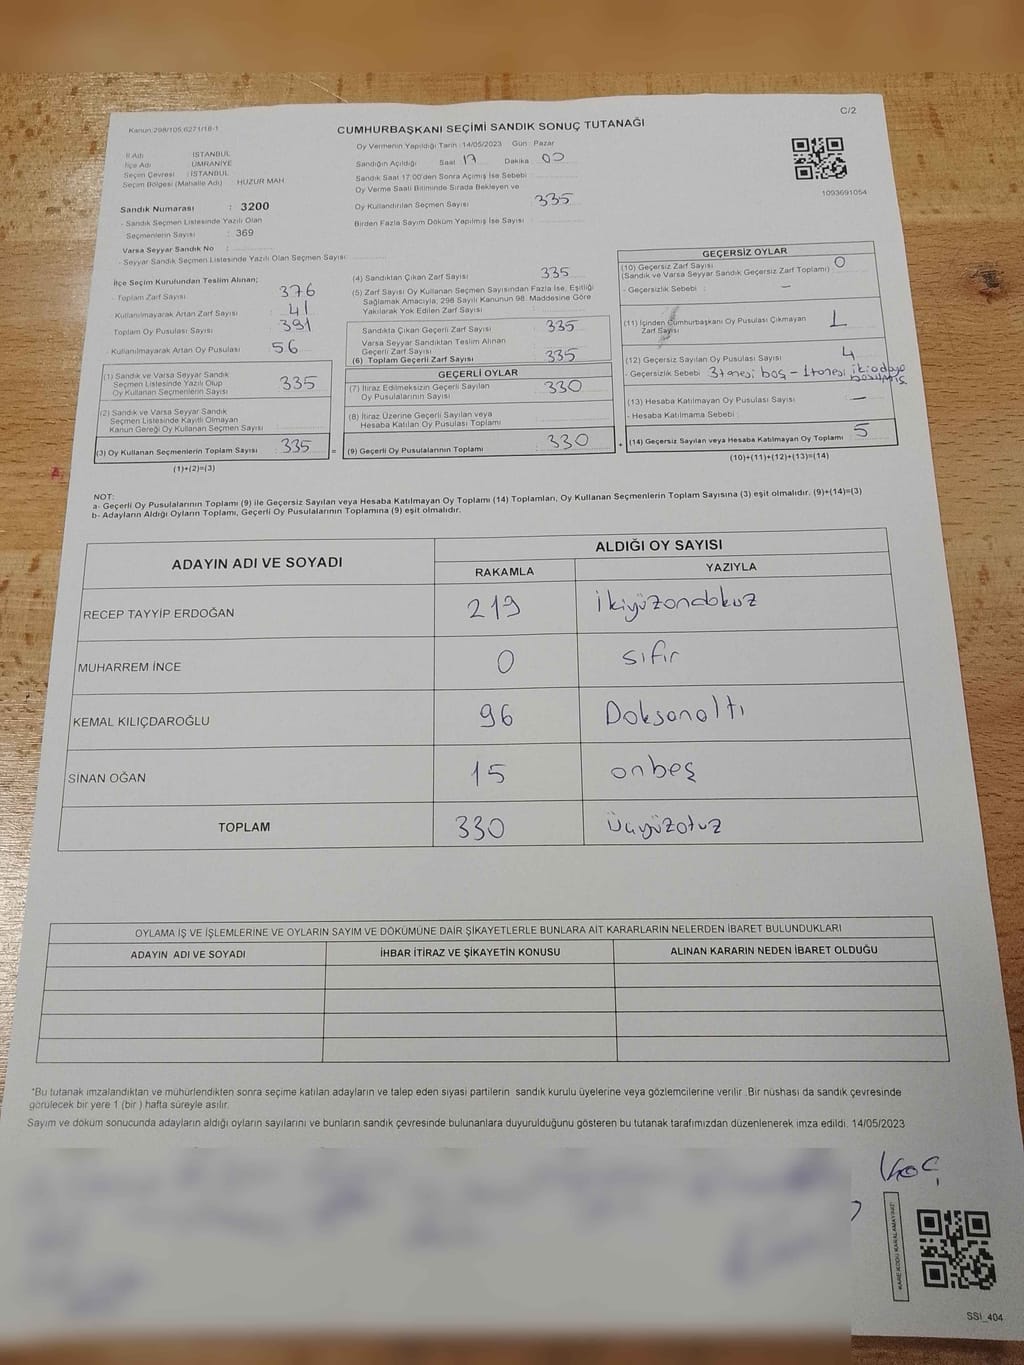 C/2
Kanun:298/105.6271/18-1
CUMHURBAŞKANI SEÇİMİ SANDIK SONUÇ TUTANAĞI
Oy Vermenin Yapıldığı Tarih :14/05/2023 Gün : Pazar
İl Adı : İSTANBUL
İlçe Adı : ÜMRANİYE
Seçim Çevresi : İSTANBUL
Seçim Bölgesi (Mahalle Adı) : HUZUR MAH
Sandığın Açıldığı Saat : 17 Dakika : 00
Sandık Saat 17.00'den Sonra Açımış İse Sebebi :
Oy Verme Saati Bitiminde Sırada Bekleyen ve
Oy Kullandırılan Seçmen Sayısı : 335
Birden Fazla Sayım Döküm Yapılmış İse Sayısı :
1093691054
Sandık Numarası : 3200
- Sandık Seçmen Listesinde Yazılı Olan
Seçmenlerin Sayısı : 369
Varsa Seyyar Sandık No :
- Seyyar Sandık Seçmen Listesinde Yazılı Olan Seçmen Sayısı:
İlçe Seçim Kurulundan Teslim Alınan;
- Toplam Zarf Sayısı : 376
- Kullanılmayarak Artan Zarf Sayısı : 41
Toplam Oy Pusulası Sayısı : 391
- Kullanılmayarak Artan Oy Pusulası : 56
(1) Sandık ve Varsa Seyyar Sandık
Seçmen Listesinde Yazılı Olup
Oy Kullanan Seçmenlerin Sayısı : 335
(2) Sandık ve Varsa Seyyar Sandık
Seçmen Listesinde Kayıtlı Olmayan
Kanun Gereği Oy Kullanan Seçmen Sayısı :
(3) Oy Kullanan Seçmenlerin Toplam Sayısı : 335 =
(1)+(2)=(3)
(4) Sandıktan Çıkan Zarf Sayısı : 335
(5) Zarf Sayısı Oy Kullanan Seçmen Sayısından Fazla İse, Eşitliği
Sağlamak Amacıyla; 298 Sayılı Kanunun 98. Maddesine Göre
Yakılarak Yok Edilen Zarf Sayısı :
Sandıkta Çıkan Geçerli Zarf Sayısı : 335
Varsa Seyyar Sandıktan Teslim Alınan
Geçerli Zarf Sayısı :
(6) Toplam Geçerli Zarf Sayısı : 335
GEÇERLİ OYLAR
(7) İtiraz Edilmeksizin Geçerli Sayılan
Oy Pusulalarının Sayısı : 330
(8) İtiraz Üzerine Geçerli Sayılan veya
Hesaba Katılan Oy Pusulası Toplamı :
(9) Geçerli Oy Pusulalarının Toplamı : 330 +
GEÇERSİZ OYLAR
(10) Geçersiz Zarf Sayısı
(Sandık ve Varsa Seyyar Sandık Geçersiz Zarf Toplamı) : 0
- Geçersizlik Sebebi : –
(11) İçinden Cumhurbaşkanı Oy Pusulası Çıkmayan
Zarf Sayısı : 1
(12) Geçersiz Sayılan Oy Pusulası Sayısı : 4
- Geçersizlik Sebebi : 3 tanesi boş – 1 tanesi iki adaya
basılmış
(13) Hesaba Katılmayan Oy Pusulası Sayısı : –
- Hesaba Katılmama Sebebi :
(14) Geçersiz Sayılan veya Hesaba Katılmayan Oy Toplamı : 5
(10)+(11)+(12)+(13)=(14)
NOT:
a- Geçerli Oy Pusulalarının Toplamı (9) ile Geçersiz Sayılan veya Hesaba Katılmayan Oy Toplamı (14) Toplamları, Oy Kullanan Seçmenlerin Toplam Sayısına (3) eşit olmalıdır. (9)+(14)=(3)
b- Adayların Aldığı Oyların Toplamı, Geçerli Oy Pusulalarının Toplamına (9) eşit olmalıdır.
ADAYIN ADI VE SOYADI
ALDIĞI OY SAYISI
RAKAMLA YAZIYLA
RECEP TAYYİP ERDOĞAN 219 ikiyüzondokuz
MUHARREM İNCE 0 sıfır
KEMAL KILIÇDAROĞLU 96 Doksanaltı
SİNAN OĞAN 15 onbeş
TOPLAM 330 üçyüzotuz
OYLAMA İŞ VE İŞLEMLERİNE VE OYLARIN SAYIM VE DÖKÜMÜNE DAİR ŞİKAYETLERLE BUNLARA AİT KARARLARIN NELERDEN İBARET BULUNDUKLARI
ADAYIN ADI VE SOYADI İHBAR İTİRAZ VE ŞİKAYETİN KONUSU ALINAN KARARIN NEDEN İBARET OLDUĞU
*Bu tutanak imzalandıktan ve mühürlendikten sonra seçime katılan adayların ve talep eden siyasi partilerin sandık kurulu üyelerine veya gözlemcilerine verilir. Bir nüshası da sandık çevresinde
görülecek bir yere 1 (bir ) hafta süreyle asılır.
Sayım ve döküm sonucunda adayların aldığı oyların sayılarını ve bunların sandık çevresinde bulunanlara duyurulduğunu gösteren bu tutanak tarafımızdan düzenlenerek imza edildi. 14/05/2023
Koç
KARE KODU KARALAMAYINIZ!
SSI_404